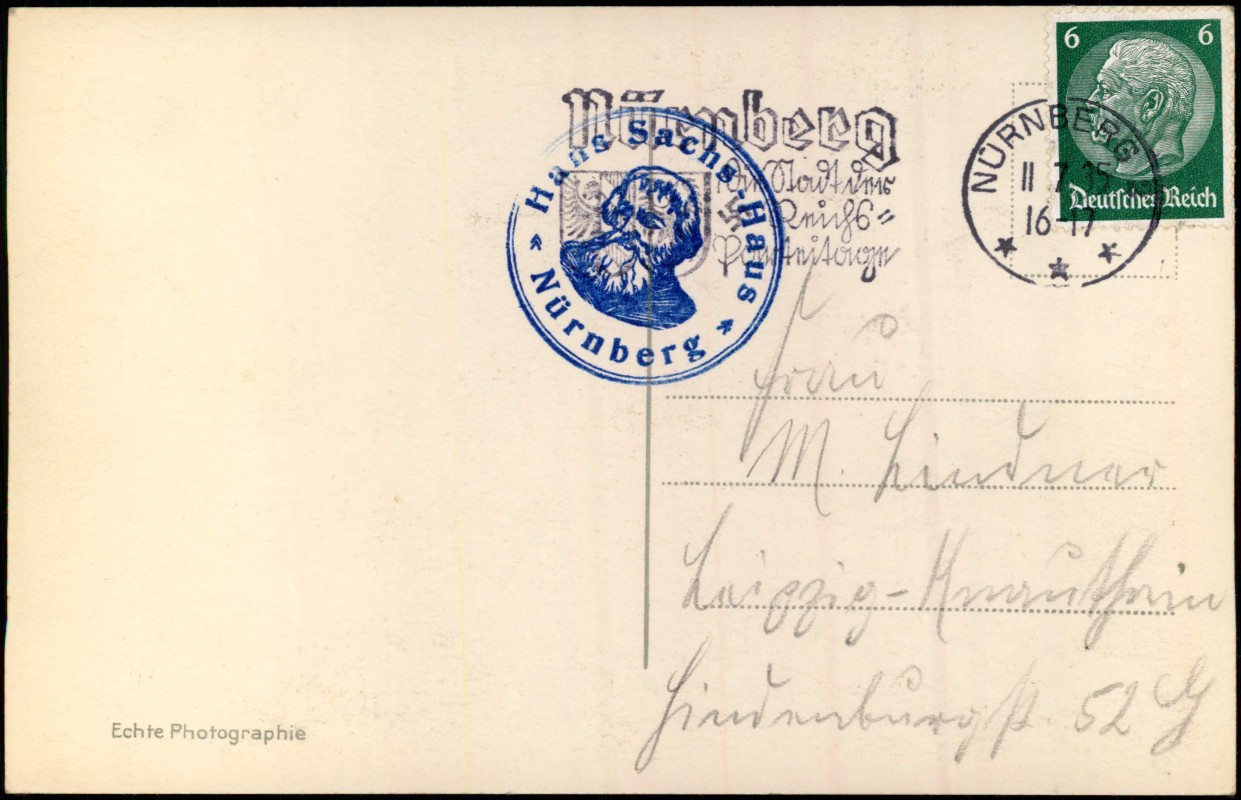 6 6
Deutsches Reich
NÜRNBERG
11 7 35
16-17
Nürnberg
Die Stadt der
Reichs=
Parteitage
Hans Sachs-Haus
Nürnberg
Frau
M. Lindner
Leipzig-Knauthain
Hindenburgstr. 52
Echte Photographie